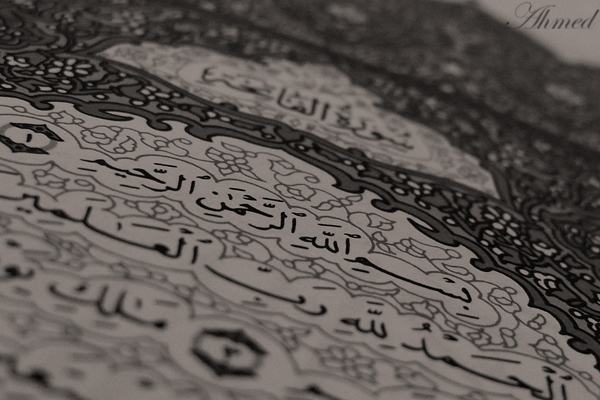 Ahmed
سورة الفاتحة
بِسْمِ ٱللَّهِ ٱلرَّحْمَٰنِ ٱلرَّحِيمِ ١
ٱلْحَمْدُ لِلَّهِ رَبِّ ٱلْعَٰلَمِينَ
مَٰلِكِ